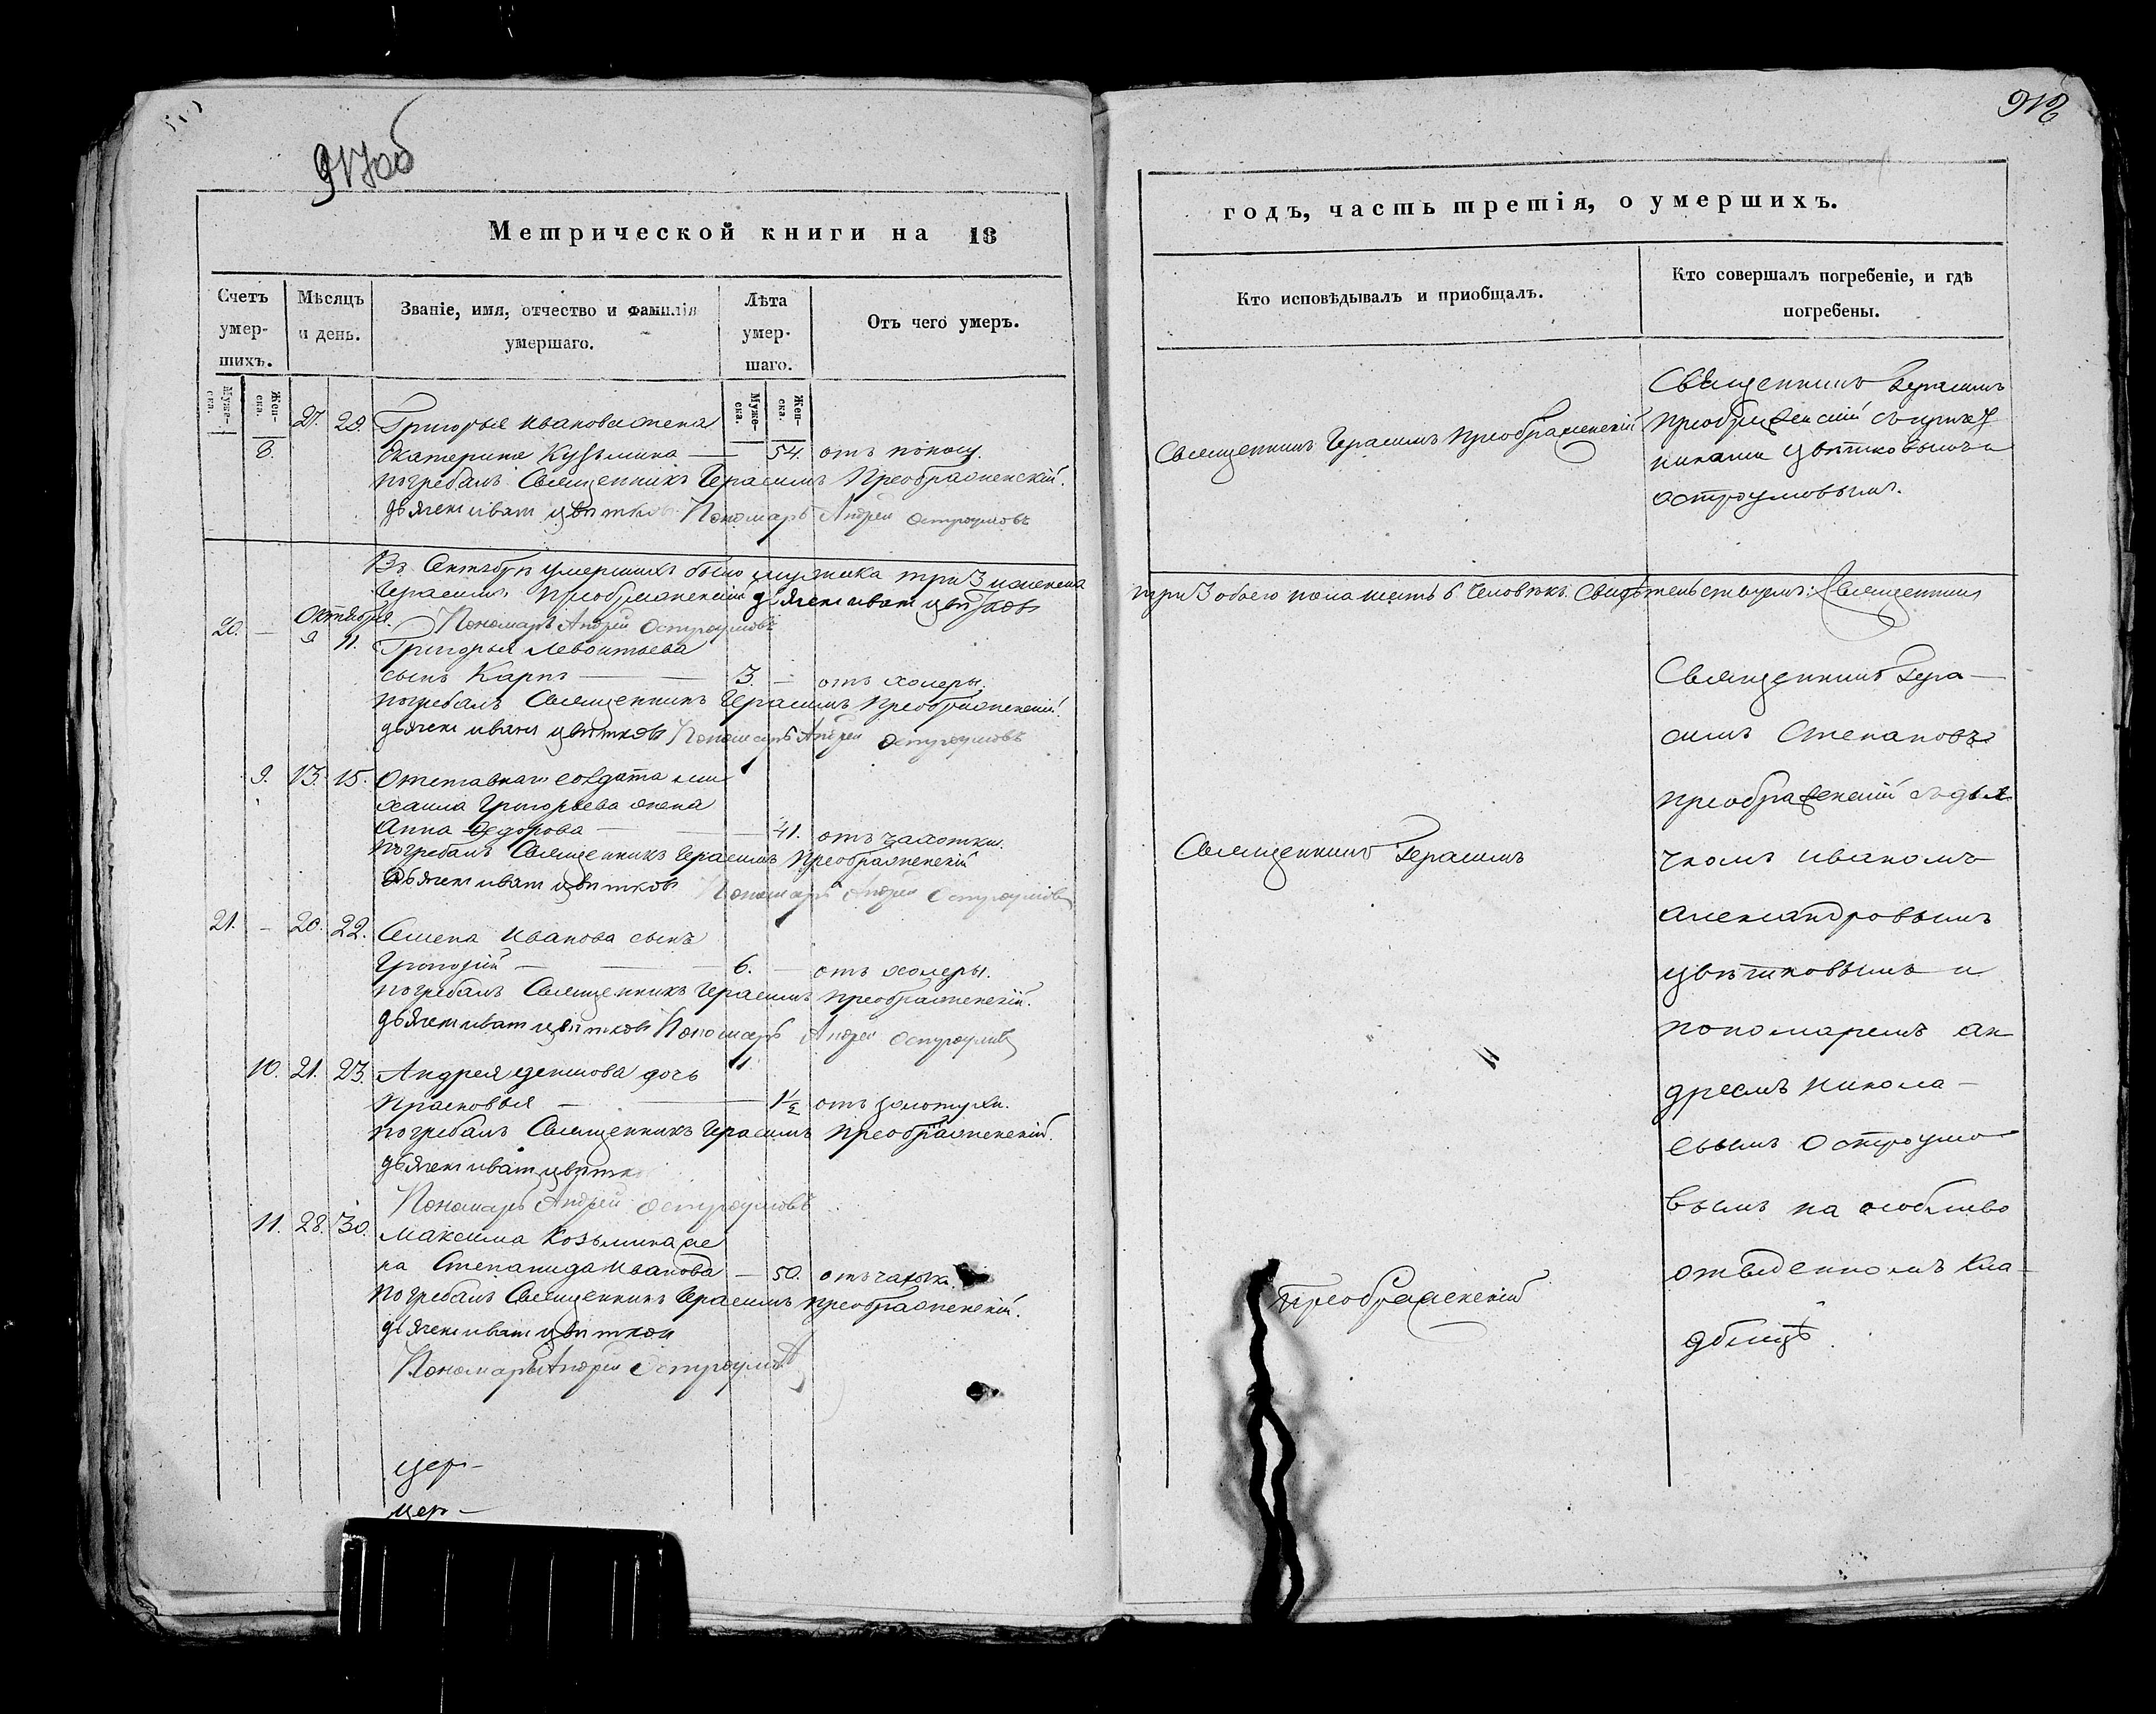 917об
Метрической книги на 18
Счетъ умер- шихъ.
Мѣсяцъ и день.
Званіе, имя, отчество и фамилія умершаго.
Лѣта умер- шаго.
Отъ чего умеръ.
Муже- ска.
Жен- ска.
Муже- ска.
Жен- ска.
27. 29. Григорья Иванова жена
8. Екатерина Кузьмина — 54. отъ поносу.
погребалъ Священникъ Герасимъ Преображенскій.
дьячекъ Иванъ Цвѣтковъ Пономарь Андрей Остроумовъ
Въ Октябрѣ умершихъ было мужска три 3 и женска
Герасимъ Преображенскій дьячекъ Иванъ Цвѣтковъ
Октября. Пономарь Андрей Остроумовъ
20. — 9 11. Григорья Левонтьева
сынъ Карпъ — 3. — отъ холеры.
погребалъ Священникъ Герасимъ Преображенскій.
дьячекъ Иванъ Цвѣтковъ Пономарь Андрей Остроумовъ
9. 13. 15. Отставнаго солдата Ми
хаила Григорьева жена
Анна Федорова — 41. отъ чахотки.
погребалъ Священникъ Герасимъ Преображенскій
дьячекъ Иванъ Цвѣтковъ Пономарь Андрей Остроумовъ
21. — 20. 22. Семена Иванова сынъ
Григорій — 6. — отъ холеры.
погребалъ Священникъ Герасимъ Преображенскій.
дьячекъ Иванъ Цвѣтковъ Пономарь Андрей Остроумовъ
10. 21. 23. Андрея дочь
Прасковья — 1½ отъ золотухи.
погребалъ Священникъ Герасимъ Преображенскій.
дьячекъ Иванъ Цвѣтк
Пономарь Андрей Остроумовъ
11. 28. 30. Максима Козьмина же
на Степанида Иванова — 50. отъ
погребалъ Священникъ Герасимъ Преображенскій.
дьячекъ Иванъ Цвѣтков
Пономарь Андрей Остроумовъ
цер-
цер-
918
годъ, часть третія, о умершихъ.
Кто исповѣдывалъ и приобщалъ.
Кто совершалъ погребеніе, и гдѣ погребены.
Священникъ Герасимъ Преображенскій
Священникъ Герасимъ
Преображенскій съ причет
никами Цвѣтковымъ и
Остроумовымъ.
три 3 обоего пола шесть 6 человѣкъ. Свидѣтельствуемъ: Священникъ
Священникъ Герасимъ
Преображенскій
Священникъ Гера-
симъ Степановъ
Преображенскій съ дья
чкомъ Иваномъ
Александровымъ
Цвѣтковымъ и
пономаремъ Ан
дреемъ Никола-
евымъ Остроумо
вымъ на особливо
отведенномъ кла-
дбищѣ.